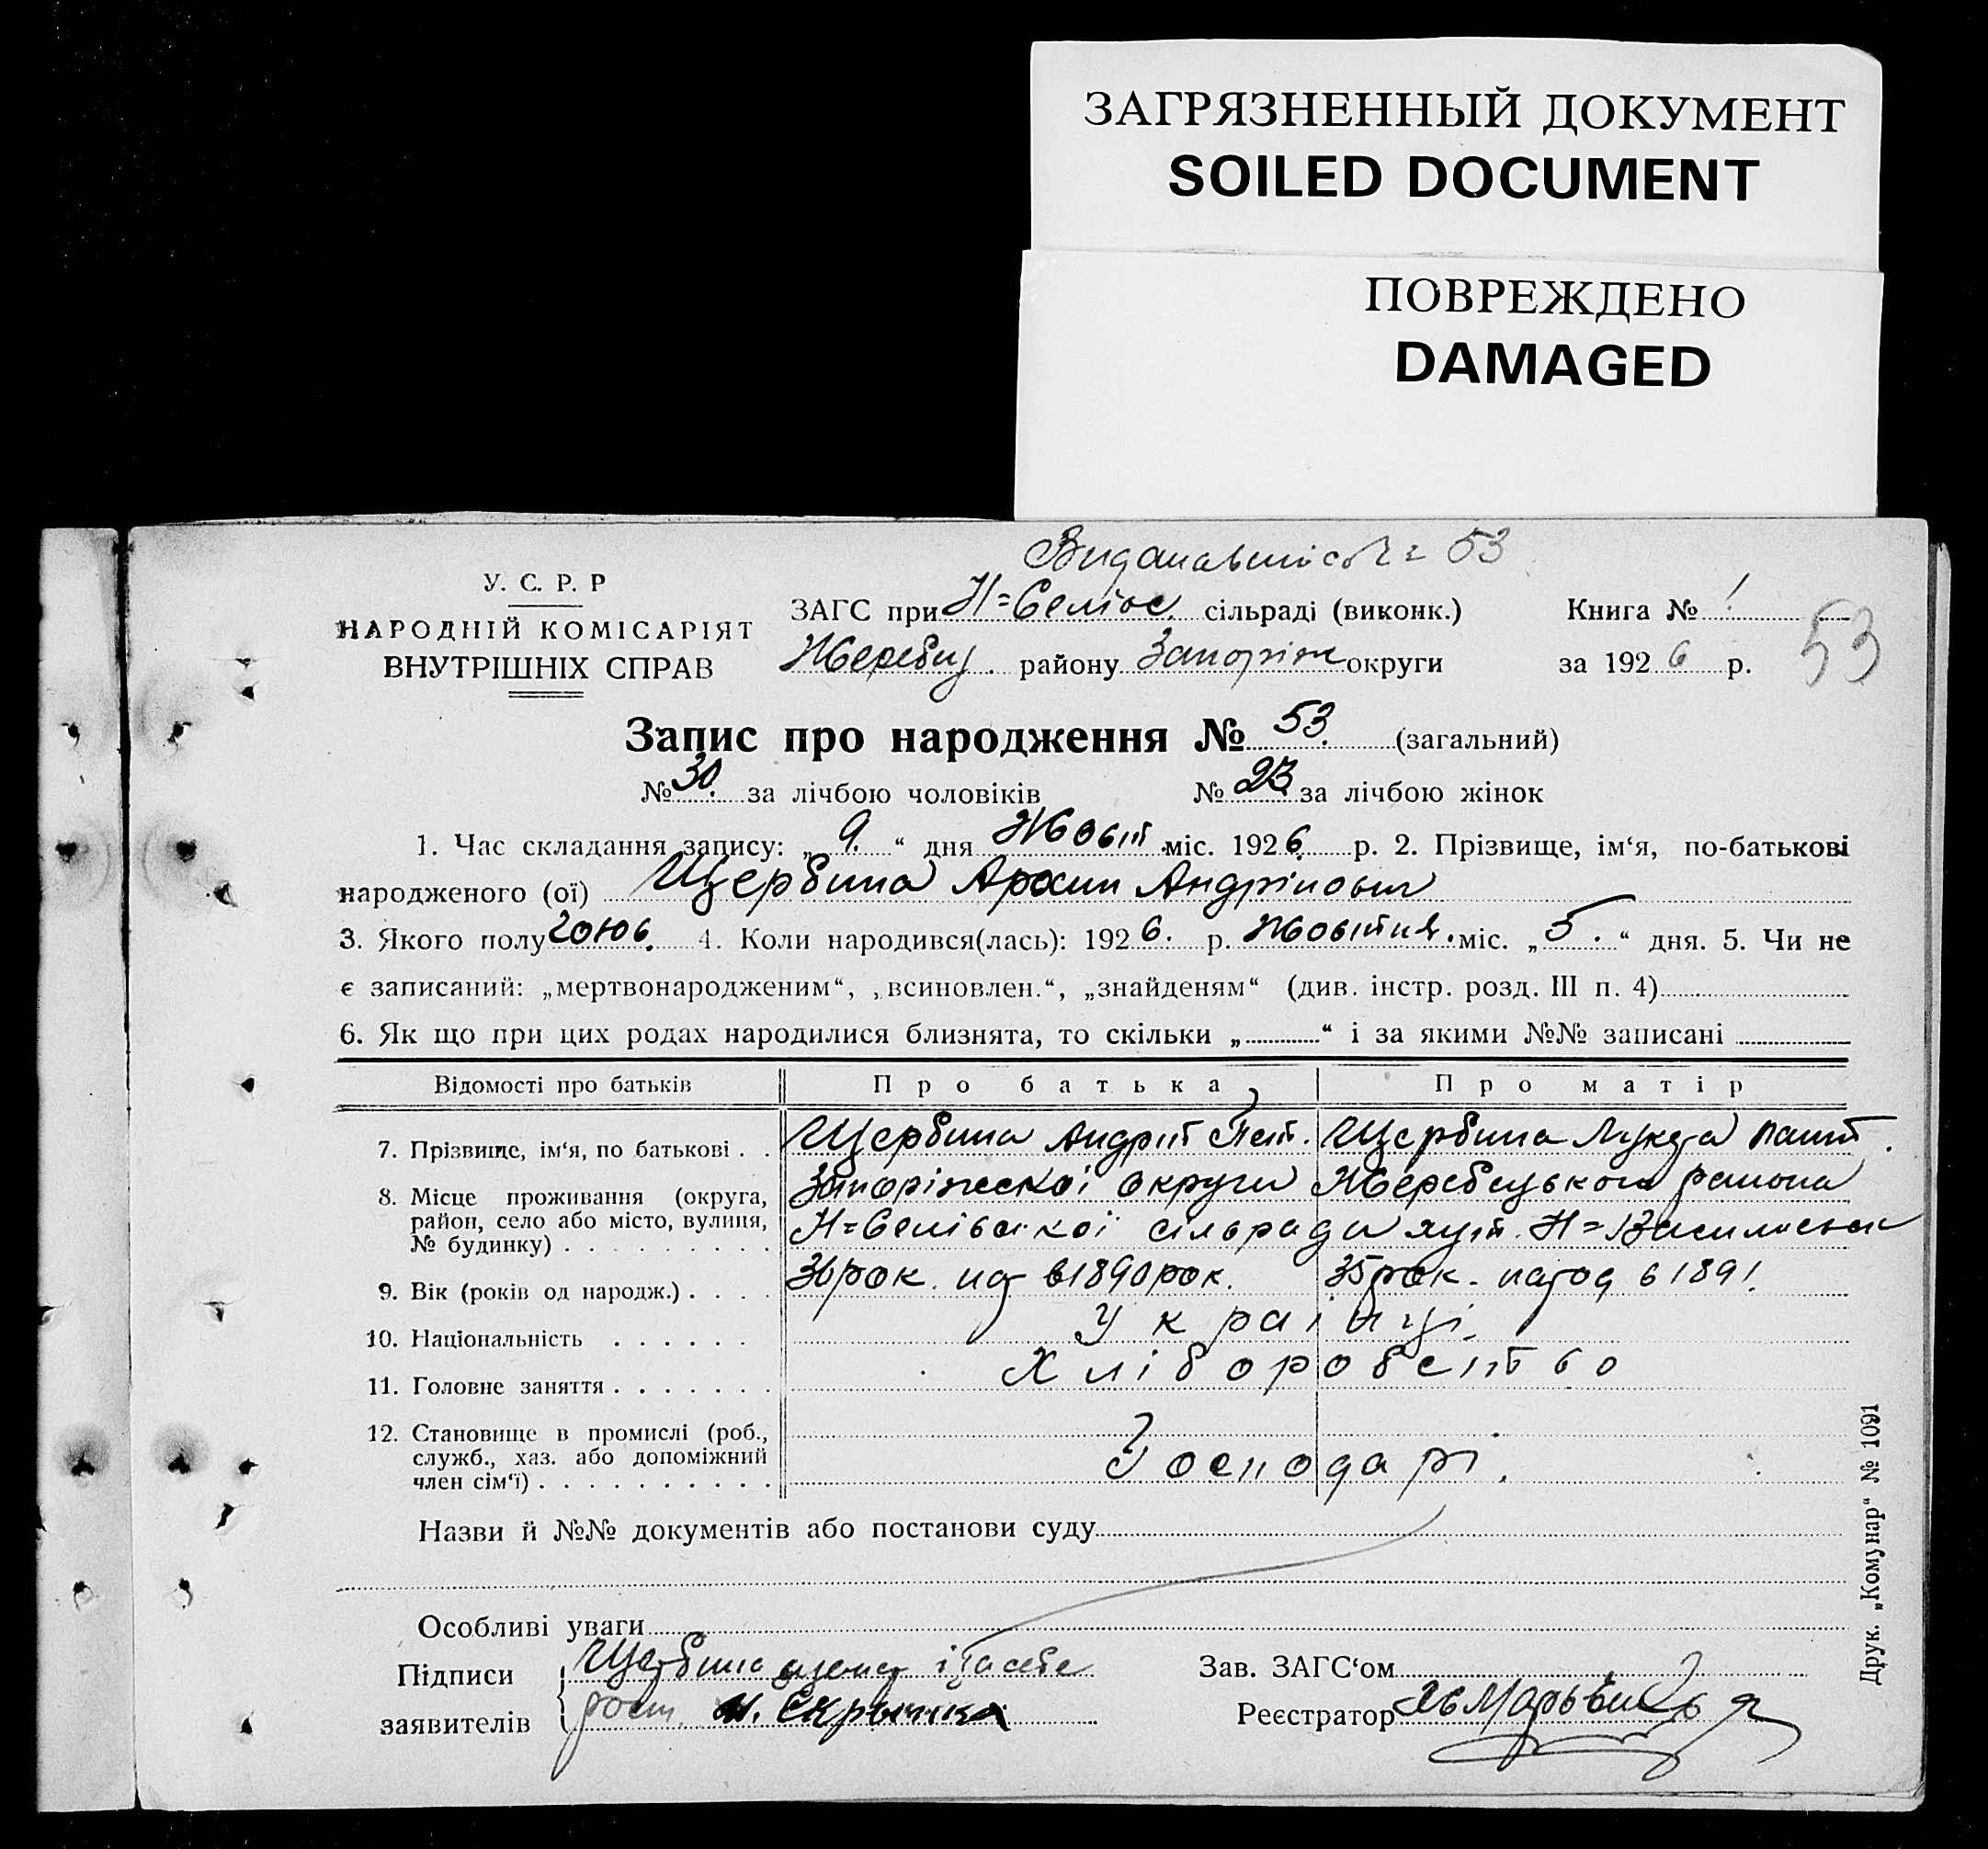 ЗАГРЯЗНЕННЫЙ ДОКУМЕНТ
SOILED DOCUMENT
ПОВРЕЖДЕНО
DAMAGED
53
У. С. Р. Р
НАРОДНІЙ КОМІСАРІЯТ
ВНУТРІШНІХ СПРАВ
ЗАГС при Н=Селівс. сільраді (виконк.) Книга № 1
Жеребец. району Запоріж округи за 1926 р. 53
Запис про народження № 53. (загальний)
№ 30. за лічбою чоловіків № 23. за лічбою жінок
1. Час складання запису: „ 9. “ дня Жовт. міс. 1926. р. 2. Прізвище, ім‘я, по-батькові
народженого (ої) Щербина Андрійович
3. Якого полу чолов. 4. Коли народився(лась): 1926. р. Жовтня. міс. „ 5. “ дня. 5. Чи не
є записаний: „мертвонародженим“, „всиновлен.“, „знайденям“ (див. інстр. розд. III п. 4)
6. Як що при цих родах народилися близнята, то скільки „ “ і за якими №№ записані
Відомості про батьків Про батька Про матір
7. Прізвище, ім‘я, по батькові . . Щербина Андрій Щербина
8. Місце проживання (округа, район, село або місто, вулиця, № будинку) . . . . . . . . . Запоріжської округи Жеребецького района
Н=Селівської сільради хут. Н=Василівськ
9. Вік (років од народж.) . . . . 36 рок. в 1890 рок. 35 рок. в 1891.
10. Національність . . . . . . Українці.
11. Головне заняття . . . . . . . Хліборобство
12. Становище в промислі (роб., служб., хаз. або допоміжний член сім‘ї) . . . . . . . . . . Господарі.
Назви й №№ документів або постанови суду
Особливі уваги
Підписи Щербина
заявителів
Зав. ЗАГС‘ом
Реєстратор
Друк. „Комунар“ № 1091